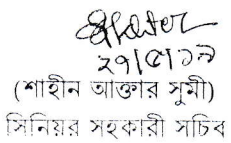 ২৭/৫/১৯
(শাহীন আক্তার সুমী)
সিনিয়র সহকারী সচিব